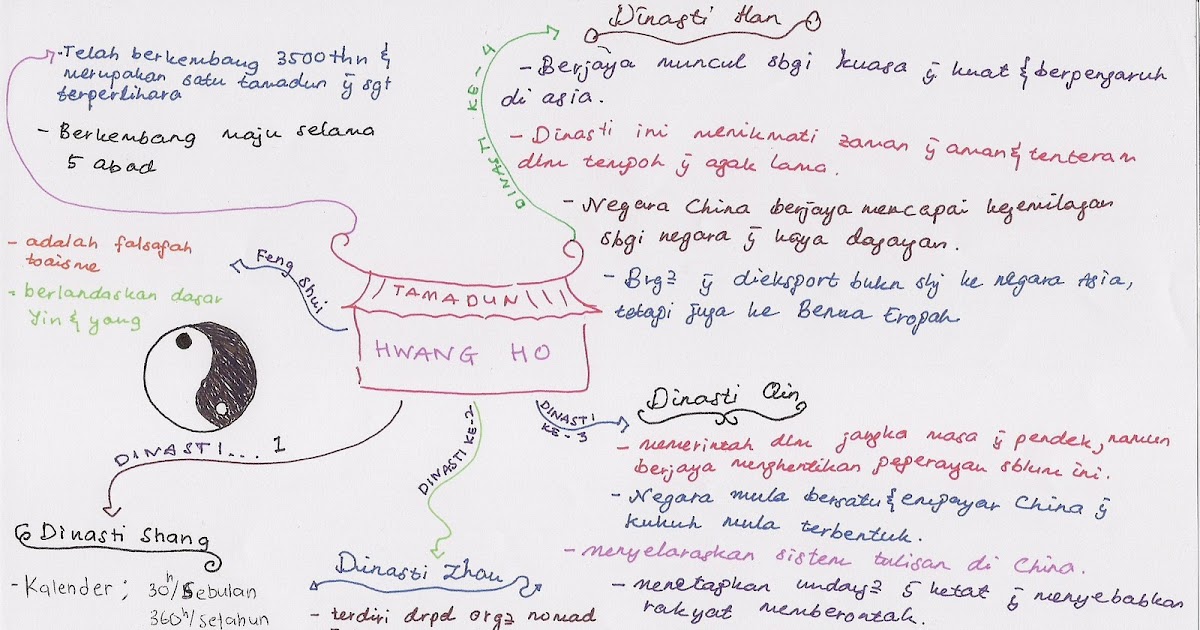 - Telah berkembang 3500 thn &
merupakan satu tamadun ȳ sgt
terperlihara
- Berkembang maju selama
5 abad
- adalah falsafah
taoisme
- berlandaskan dasar
Yin & yang
Feng Shui
TAMADUN
HWANG HO
DINASTI KE-4
Dinasti Han
- Berjaya muncul sbgi kuasa ȳ kuat & berpengaruh
di asia.
- Dinasti ini menikmati zaman ȳ aman & tenteram
dlm tempoh ȳ agak lama.
- Negara China berjaya mencapai kegemilagan
sbgi negara ȳ kaya dagagan.
- Brg2 ȳ dieksport bukn shj ke negara Asia,
tetapi juga ke Benua Eropah
DINASTI KE-3
Dinasti Qin
- memerintah dlm jangka masa ȳ pendek, namun
berjaya menghentikan peperagan sblum ini.
- Negara mula bersatu & empayar China ȳ
kukuh mula terbentuk.
- menyelaraskan sistem tulisan di China.
- menetapkan undag2 ȳ ketat ȳ menyebabkan
rakyat memberontak.
DINASTI KE-2
Dinasti Zhou
- terdiri drpd org2 nomad
DINASTI... 1
Dinasti Shang
- Kalender; 30h/sebulan
360h/setahun